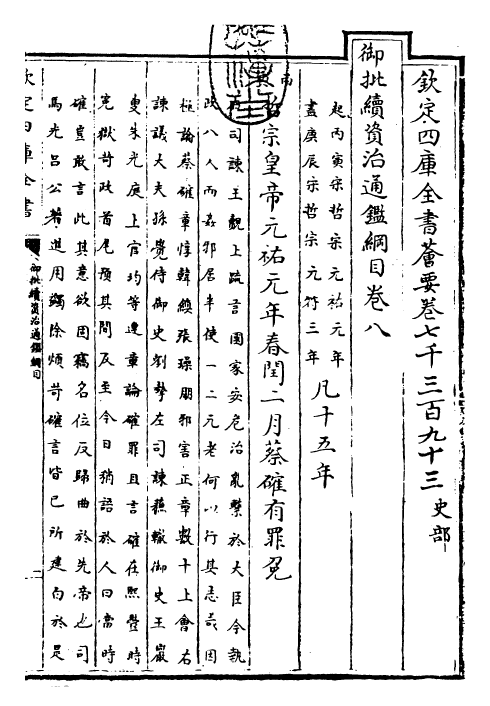 欽定四庫全書薈要卷七千三百九十三 史部
御批續資治通鑑綱目卷八
起丙寅宋哲宗元祐元年
盡庚辰宋哲宗元符三年
凡十五年
丙寅哲宗皇帝元祐元年春閏二月蔡確有罪免
右司諫王覿上疏言國家安危治亂繫於大臣今執
政八人而姦邪居半使一二元老何以行其志哉因
極論蔡確章惇韓縝張璪朋邪害正章數十上會右
諫議大夫孫覺侍御史劉摯左司諫蘇轍御史王巖
叟朱光庭上官均等連章論確罪且言確在熙豐時
冤獄苛政首尾預其間及至今日稍語於人曰當時
確豈敢言此其意欲固竊名位反歸曲於先帝也司
馬光呂公著進用蠲除煩苛確言皆己所建白於是
欽定四庫全書
御批續資治通鑑綱目
一